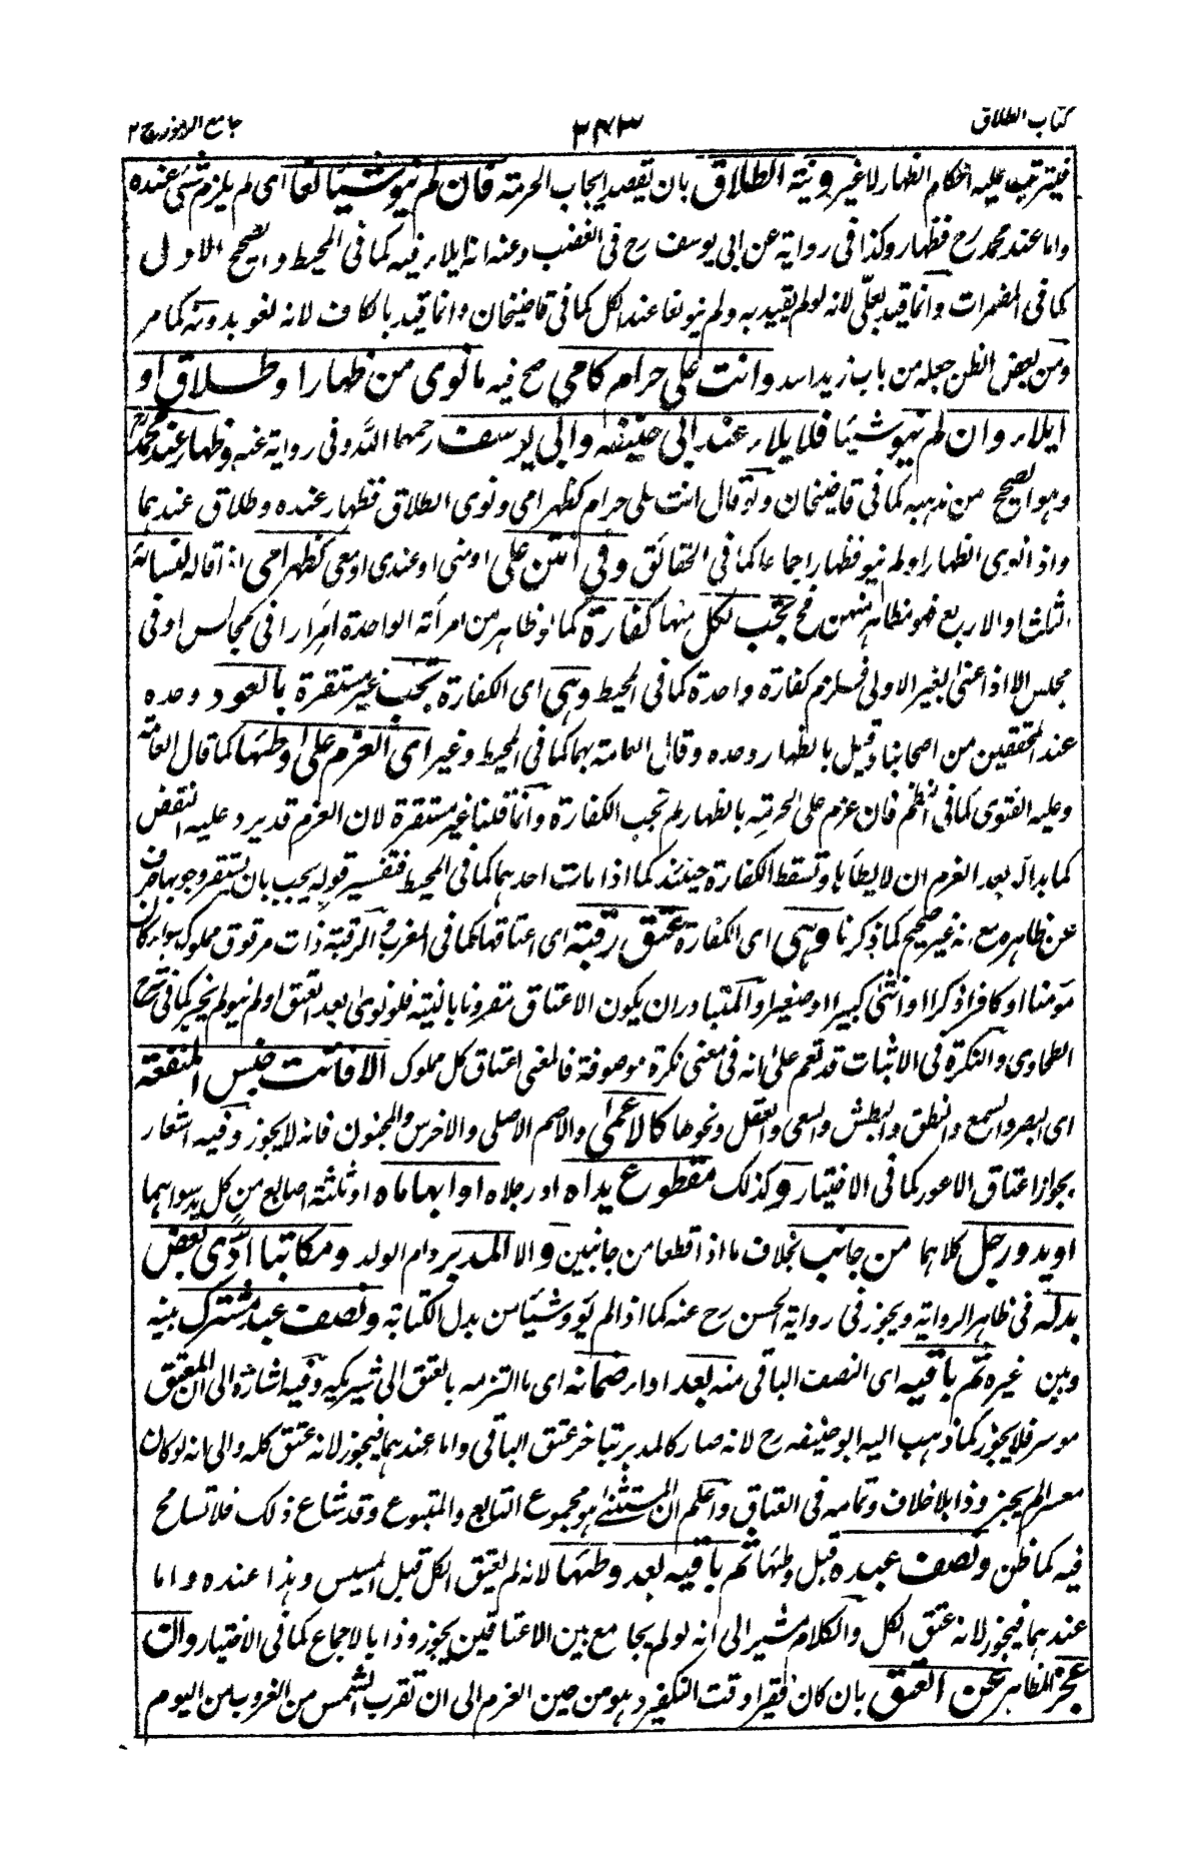 كتاب الطلاق ٣٤٣ جامع الرموز ج ٢
فيترتب عليه احكام الظهار لا غير ونية الطلاق بان يقصد ايجاب الحرمة فان لم ينو شيئا لغا اى لم يلزم شئ عنده
واما عند محمد رح فظهار وكذا فى رواية عن ابى يوسف رح فى الغضب وعنه انه ايلاء فيه كما فى المحيط والصحيح الاول
كما فى المضمرات وانما قيد بعلىّ لانه لو لم يقيد به ولم ينو لغا عند الكل كما فى قاضيخان وانما قيد بالكاف لانه لغو بدونه كما مر
ومن بعض الظن جعله من باب زيد اسد وانت على حرام كامى صح فيه ما نوى من ظهار او طلاق او
ايلاء وان لم ينو شيئا فايلاء عند ابى حنيفة وابى يوسف رحمهما الله وفى رواية عنه وظهار عند محمد رح
وهو الصحيح من مذهبه كما فى قاضيخان ولو قال انت على حرام كظهر امى ونوى الطلاق فظهار عنده وطلاق عندهما
واذا نوى الظهار او لم ينو فظهار اجماعا كما فى الحقائق وفى انتن على او منى او عندى او معى كظهر امى اذا قاله لنسائه
الثلث او الاربع فهو مظاهر منهن فح تجب لكل منها كفارة كما لو ظاهر من امرأته الواحدة مرارا فى مجالس او فى
مجلس الا اذا عنى بغير الاولى فيلزم كفارة واحدة كما فى المحيط وهى اى الكفارة تجب غير مستقرة بالعود وحده
عند المحققين من اصحابنا وقيل بالظهار وحده وقال العامة بهما كما فى المحيط وغيره اى العزم على وطئها كما قال العامة
وعليه الفتوى كما فى النظم فان عزم على الحرمة بالظهار لم تجب الكفارة وانما قلنا غير مستقرة لان العزم قد يرد عليه النقض
كما بدا له بعد العزم ان لا يطأها وتسقط الكفارة حينئذ كما اذا مات احدهما كما فى المحيط فتفسير قوله يجب بان يستقر وجوبها صرف
عن ظاهره مع انه غير صحيح كما ذكرنا وهى اى الكفارة عتق رقبة اى اعتاقها كما فى المغرب والرقبة ذات مرقوق مملوك سواء كان
مؤمنا او كافرا ذكرا او انثى كبيرا او صغيرا والمتبادر ان يكون الاعتاق مقرونا بالنية فلو نوى بعد العتق او لم ينو لم يجز كما فى شرح
الطحاوى والنكرة فى الاثبات قد تعم على انه فى معنى نكرة موصوفة فالمعنى اعتاق كل مملوك الا فائت جنس المنفعة
اى البصر والسمع والنطق والبطش والسعى والعقل ونحوها كالاعمى والاصم الاصلى والاخرس والمجنون فانه لا يجوز وفيه اشعار
بجواز اعتاق الاعور كما فى الاختيار وكذلك مقطوع يداه او رجلاه او ابهاماه او ثلثة اصابع من كل يد سواهما
او يد ورجل كلاهما من جانب بخلاف ما اذا قطعا من جانبين والا المدبر وام الولد ومكاتبا ادّى بعض
بدله فى ظاهر الرواية ويجوز فى رواية الحسن رح عنه كما اذا لم يؤد شيئا من بدل الكتابة ونصف عبد مشترك بينه
وبين غيره ثم باقيه اى النصف الباقى منه بعد اداء ضمانه اى ما التزمه بالعتق الى شريكه وفيه اشارة الى ان المعتق
موسر فلا يجوز كما ذهب اليه ابو حنيفة رح لانه صار كالمدبر بتاخر عتق الباقى واما عندهما فيجوز لانه عتق كله والى انه لو كان
معسرا لم يجز وذا بلا خلاف وتمامه فى العتاق واعلم ان المستثنى هو مجموع التابع والمتبوع وقد شاع ذلك فلا تسامح
فيه كما ظن ونصف عبده قبل وطئها ثم باقيه بعد وطئها لانه لم يعتق الكل قبل المسيس وهذا عنده واما
عندهما فيجوز لانه عتق الكل والكلام مشير الى انه لو لم يجامع بين الاعتاقين يجوز وذا بالاجماع كما فى الاختيار وان
عجز المظاهر عن العتق بان كان فقيرا وقت التكفير وهو من حين العزم الى ان تقرب الشمس من الغروب من اليوم